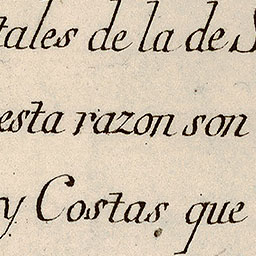 tales de la de S
esta razon son
y Costas que